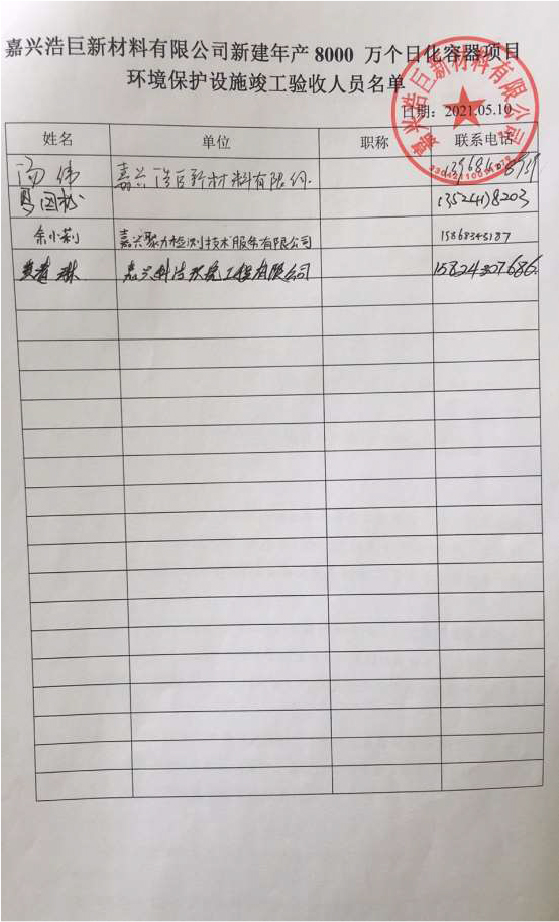 嘉兴浩巨新材料有限公司新建年产 8000 万个日化容器项目
环境保护设施竣工验收人员名单
日期：2021.05.10
姓名 单位 职称 联系电话
汤伟 嘉兴浩巨新材料有限公司
13524118203
余小莉 嘉兴聚力检测技术服务有限公司 15868345187
嘉兴科洁环境工程有限公司 15824307686
嘉兴浩巨新材料有限公司